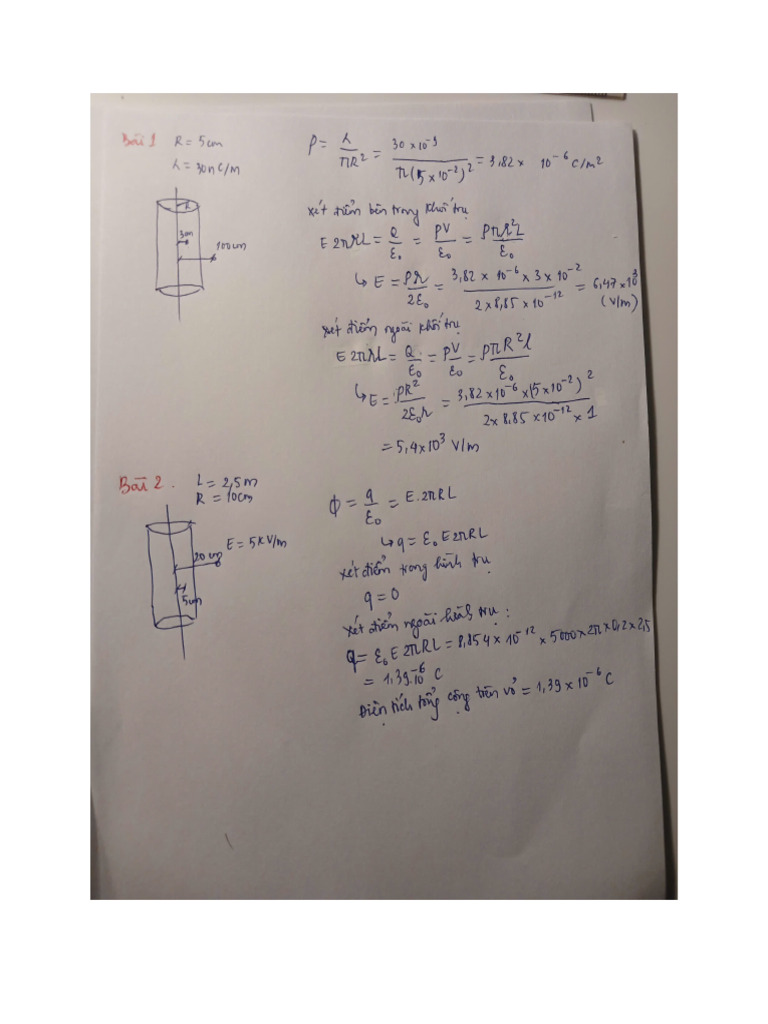 Bài 1 R = 5cm
λ = 30nC/m
ρ = λ/πR² = 30×10⁻⁹/π(5×10⁻²)² = 3,82 × 10⁻⁶ C/m²
xét điểm bên trong khối trụ
E2πrL = Q/ε₀ = ρV/ε₀ = ρπr²L/ε₀
↳ E = ρr/2ε₀ = 3,82 × 10⁻⁶ × 3 × 10⁻²/2×8,85×10⁻¹² = 6,47×10³ (V/m)
xét điểm ngoài khối trụ
E2πrL = Q/ε₀ = ρV/ε₀ = ρπR²l/ε₀
↳ E = ρR²/2ε₀r = 3,82×10⁻⁶×(5×10⁻²)²/2×8,85×10⁻¹²×1
= 5,4×10³ V/m
100cm
Bài 2. L = 2,5m
R = 10cm
E = 5kV/m
20cm
5cm
ϕ = q/ε₀ = E.2πRL
↳ q = ε₀E2πRL
xét điểm trong hình trụ
q = 0
xét điểm ngoài hình trụ :
q = ε₀E2πRL = 8,854×10⁻¹²×5000×2π×0,2×2,5
= 1,39.10⁻⁶ C
Điện tích tổng cộng trên vỏ = 1,39×10⁻⁶ C